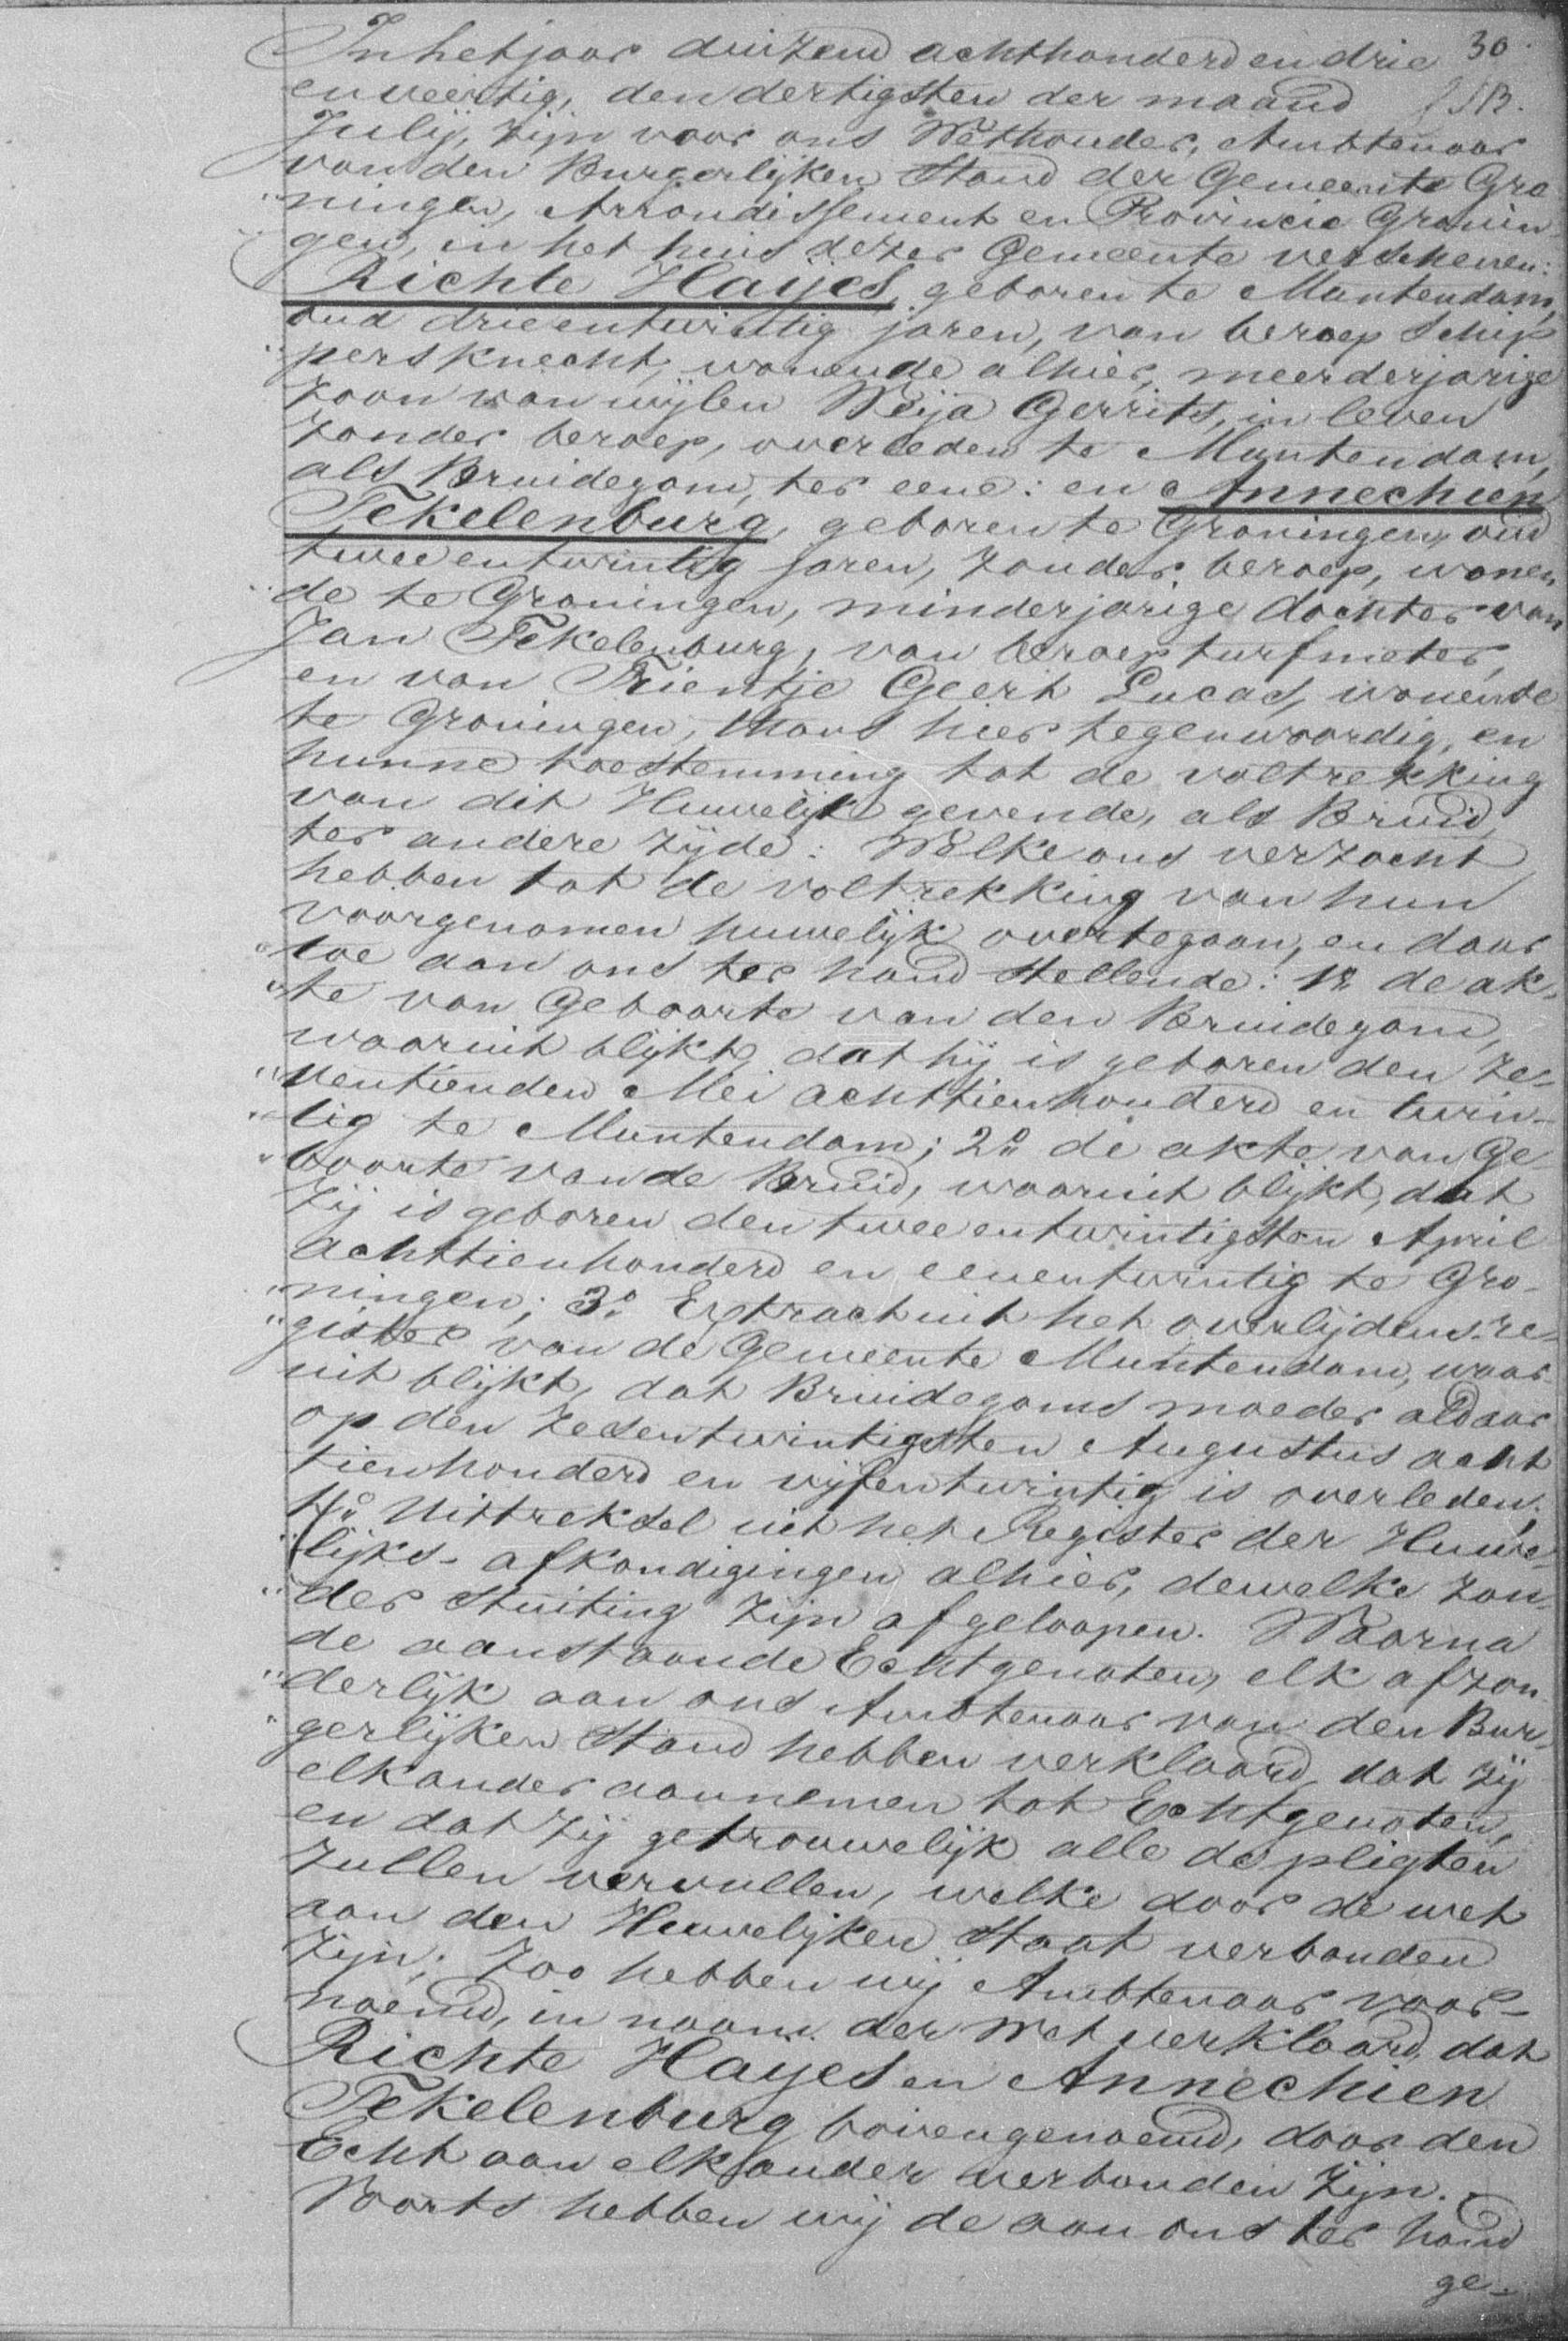 In het jaar duizend achthonderd en drie 30.
en veertig, den dertigsten der maand
Julij, zijn voor ons Wethouder, Ambtenaar
van den Burgerlijken Stand der Gemeente Gro
"ningen, Arrondissement en Provincie Gronin-
gen, in het huis dezer Gemeente verschenen:
Richte Haijes, geboren te Muntendam,
oud drieentwintig jaren, van beroep Schip
"persknecht, wonende alhier, meerderjarige
Zoon van wijlen Weija Gerrits, in leven
zonder beroep, overleden te Muntendam,
als Bruidegom, ter eene: en Annechien
Tekelenburg, geboren te Groningen, oud
twee entwintig jaren, zonder beroep, wonen
"de te Groningen, minderjarige dochter van
Jan Tekelenburg, van beroep turfmeter,
en van Trientje Geert Lucas, wonende
te Groningen, thans hier tegenwoordig, en
hunne toestemming tot de voltrekking
van dit Huwelijk gevende, als Bruid,
ter andere zijde: Welke ons verzocht
hebben tot de voltrekking van hun
voorgenomen huwelijk overtegaan, en daar
"toe aan ons ter hand stellende: 1o de ak-
"te van Geboorte van den Bruidegom,
waaruit blijkt, dat hij is geboren den ze-
"ventienden Mei achttienhonderd en twin-
"tig te Muntendam; 2o de akte van Ge-
"boorte van de Bruid, waaruit blijkt, dat
zij is geboren den twee entwintigsten April
achttienhonderd en eenentwintig te Gro-
"ningen; 3o Extract uit het overlijdens-re-
"gister van de Gemeente Muntendam, waar-
uit blijkt, dat Bruidegoms moeder aldaar
op den zesentwintigsten Augustus acht
tienhonderd en vijfentwintig is overleden;
4o Uittreksel uit het Register der Huwe-
"lijks-afkondigingen alhier, dewelke zon-
"der stuiting zijn afgeloopen. Waarna
de aanstaande Echtgenoten, elk afzon
"derlijk aan ons Ambtenaar van den Bur-
"gerlijken Stand hebben verklaard, dat zij
elkander aannemen tot Echtgenoten,
en dat zij getrouwelijk alle de pligten
zullen vervullen, welke door de wet
aan den Huwelijken Staat verbonden
zijn; zoo hebben wij Ambtenaar voor-
noemd, in naam der Wet verklaard, dat
Richte Hayes en Annechien
Tekelenburg bovengenoemd, door den
Echt aan elkander verbonden zijn.
Voorts hebben wij de aan ons ter hand
ge-